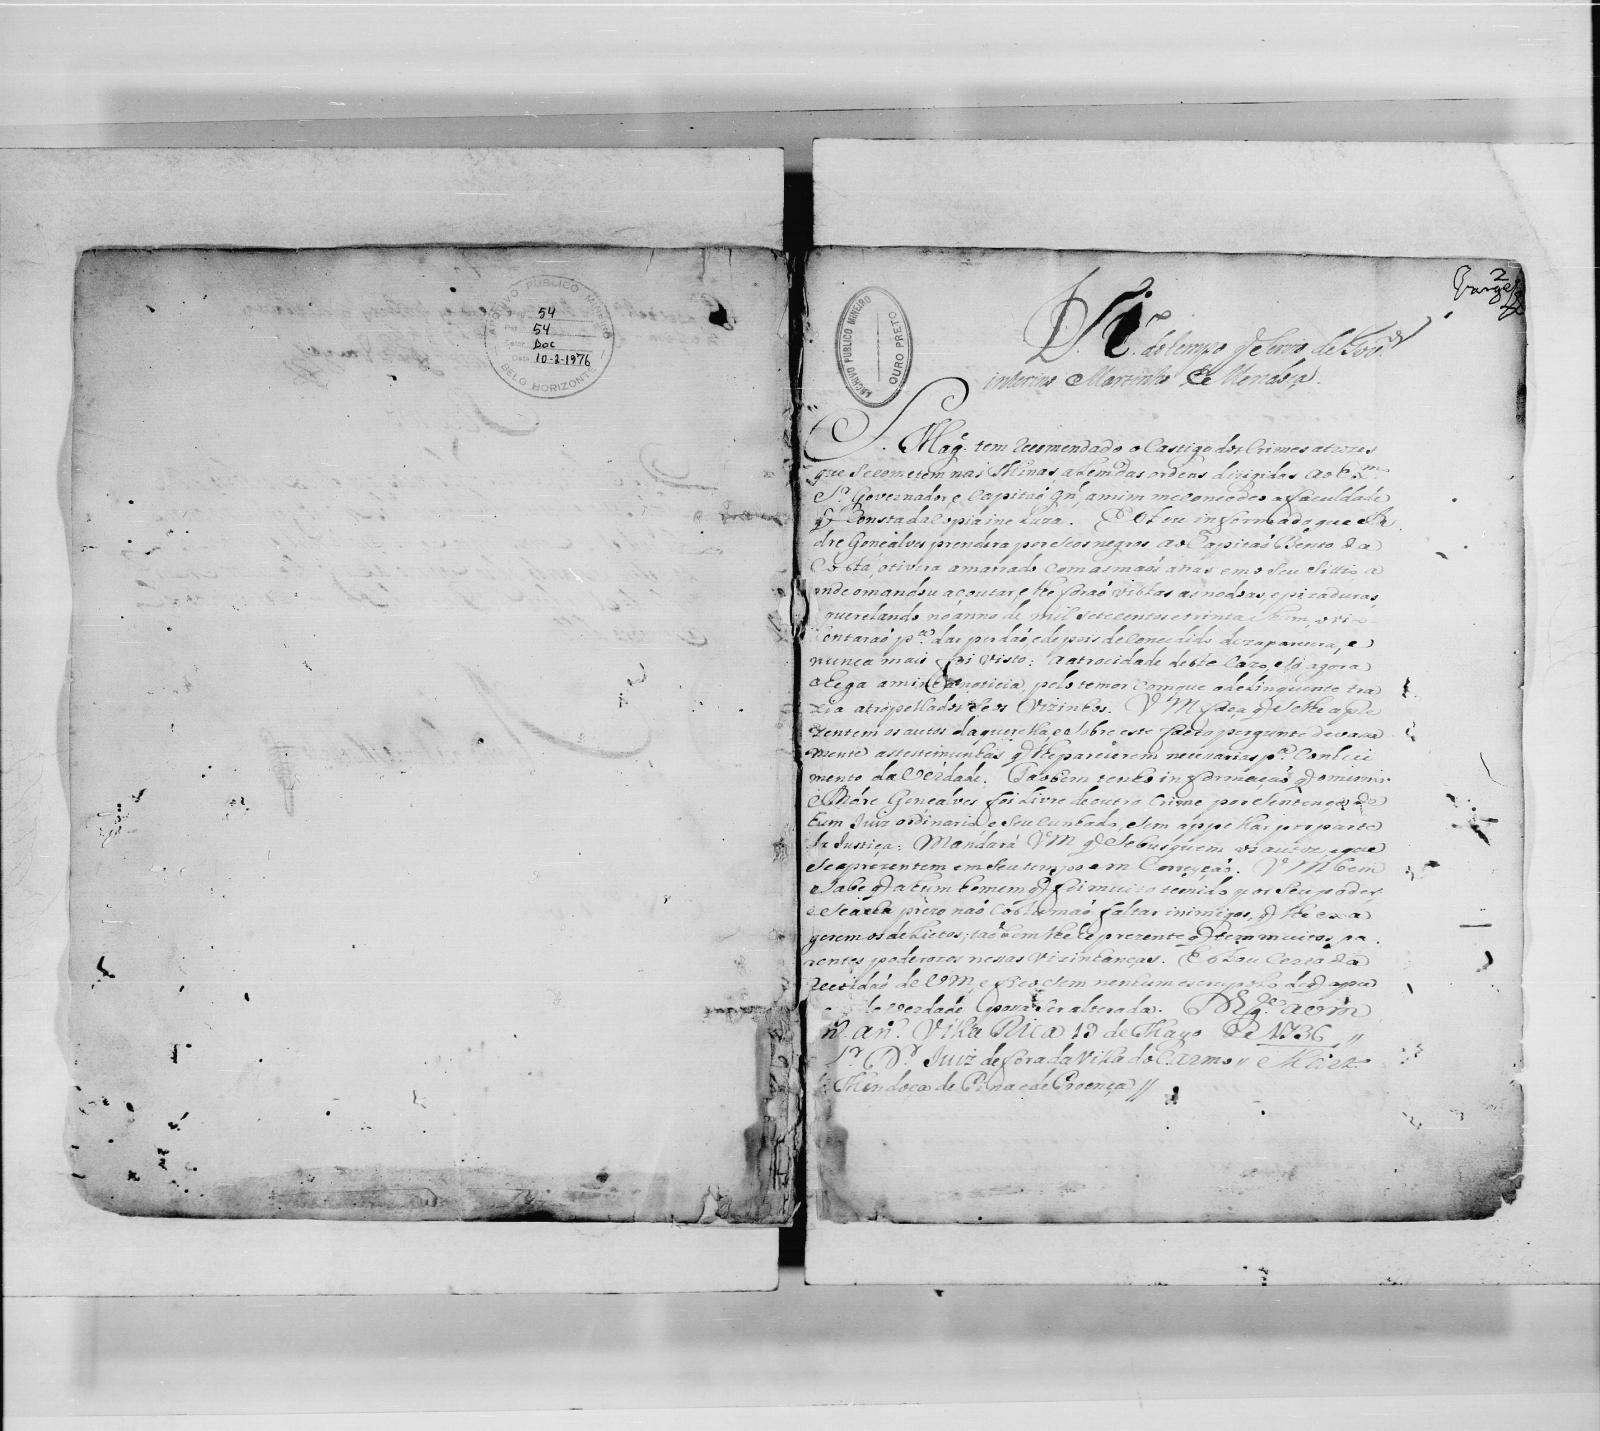 ARCHIVO PUBLICO MINEIRO
54
54
Doc
Data 10-2-1976
BELO HORIZONTE
ARCHIVO PUBLICO MINEIRO
OURO PRETO
2
Varges
do tempo q servio de Gov.or
interino Martinho de Mendoça.
S. Mag.e tem recomendado o Castigo dos Crimes atrozes
que se cometem nas Minas, alem das ordens dirigidas ao Ex.mo
S.r Governador e Capitaõ Gn.l, amim me concedeo a faculdade
q Consta da Copia incluza. Estou informado que An
dre Gonçalves prendera por seos negros ao Capitaõ Bento da
Costa, o tivera amarrado com as maõs atras em o seu Sitio a
onde o mandou açoutar, e lhe foraõ vistas as nodoas, e pizaduras,
querelando no anno de mil sete centos e trinta
p.a dar perdaõ, e depois de concedido dezaparecera, e
nunca mais foi visto: a atrocidade deste Cazo, e só agora
chega amim a noticia pelo temor com que o delinquente tra
zia atropellados seos Vizinhos. V M faça q se lhe apre
zentem os autos da querella, e sobre este facto pergunte devaça
mente as testemunhas q lhe parecerem necesarias p.a Conheci
mento da Verdade. Taobem tenho informaçaõ q o mesmo
André Gonçalves foi Livre de outro Crime por Sentença de
hum Juiz ordinario e seu Cunhado, sem appellar por parte
da Justiça: Mandará V M q se busquem os autos, e que
se aprezentem em seu tempo em Correyçaõ. V M bem
sabe q a hum homem q foi muito temido por seu poder,
e se acha prezo naõ Costumaõ faltar inimigos, q lhe exa
gerem os delictos; taõbem lhe he prezente q tem muitos pa
rentes poderozos nessas Vizinhanças. Estou Certo da
rectidaõ de V M, e fico sem nenhum escrupulo de q apu
verdade possa ser alterada. D.s g.de a V M
m.s an.s Villa Rica 19 de Mayo de 1736 //
S.r D.r Juiz de fora da Villa do Carmo // Mart.o
Mendoça de Pina e de Proença //